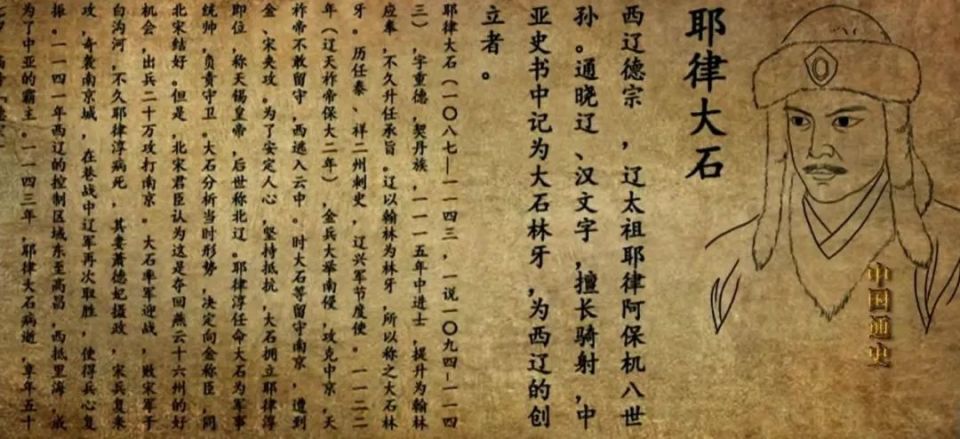 耶律大石
西辽德宗，辽太祖耶律阿保机八世
孙。通晓辽、汉文字，擅长骑射，中
亚史书中记为大石林牙，为西辽的创
立者。
耶律大石（一〇八七—一一四三，一说一〇九四-一一四
三），字重德，契丹族，一一一五年中进士，提升为翰林
应奉，不久升任承旨。辽以翰林为林牙，所以称之大石林
牙。历任泰、祥二州刺史，辽兴军节度使。一一二二
年（辽天祚帝保大二年），金兵大举南侵，攻克中京，天
祚帝不敢留守，西逃入云中。时大石等留守南京，遭到
金、宋夹攻。为了安定人心，坚持抵抗，大石拥立耶律淳
即位，称天锡皇帝，后世称北辽。耶律淳任命大石为军事
统帅，负责守卫。大石分析当时形势，决定向金称臣，同
北宋结好。但是，北宋君臣认为这是夺回燕云十六州的好
机会，出兵二十万攻打南京。大石率军迎战，败宋军于
白沟河，不久耶律淳病死，其妻萧德妃摄政，宋兵复来
攻，奇袭南京城，在巷战中辽军再次取胜，使得兵心复
振。一一四一年西辽的控制区域东至高昌，西抵里海，成
为了中亚的霸主。一一四三年，耶律大石病逝，享年五十
中国通史